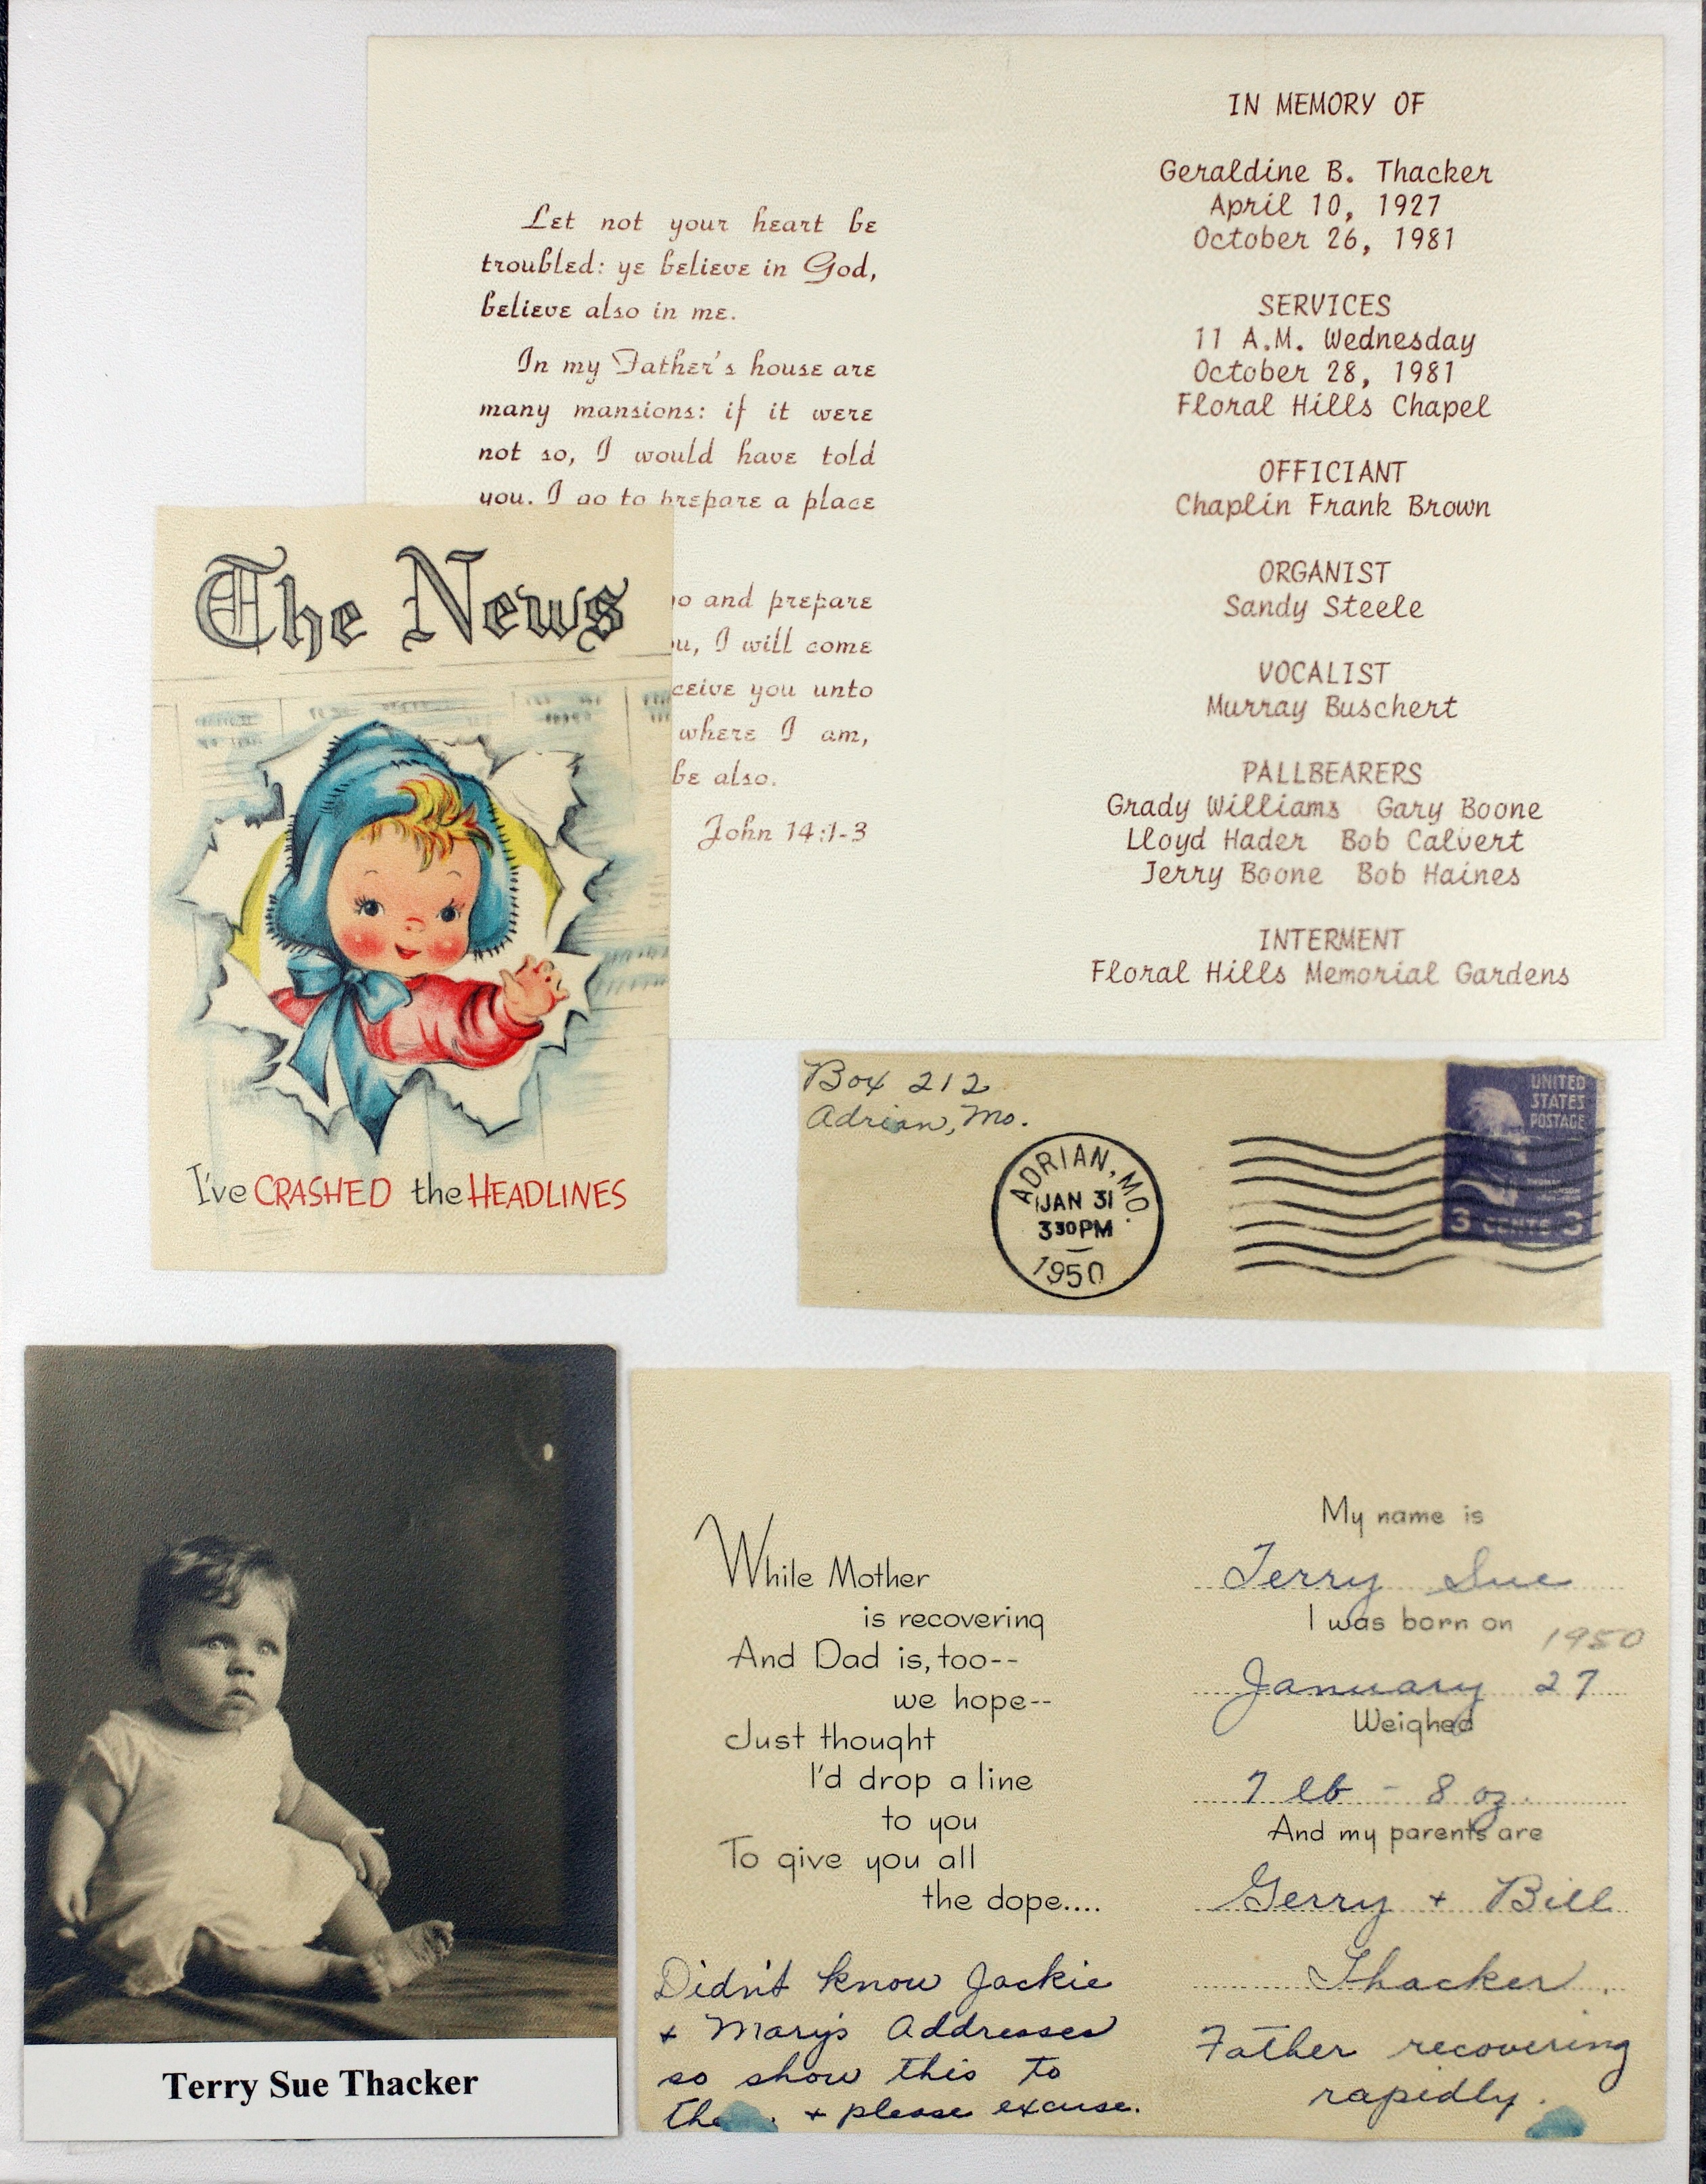 Let not your heart be
troubled: ye believe in God,
believe also in me.
In my Father's house are
many mansions: if it were
not so, I would have told
you. I go to prepare a place
and prepare
I will come
you unto
where I am,
be also.
John 14:1-3
IN MEMORY OF
Geraldine B. Thacker
April 10, 1927
October 26, 1981
SERVICES
11 A.M. Wednesday
October 28, 1981
Floral Hills Chapel
OFFICIANT
Chaplin Frank Brown
ORGANIST
Sandy Steele
VOCALIST
Murray Buschert
PALLBEARERS
Grady Williams Gary Boone
Lloyd Hader Bob Calvert
Jerry Boone Bob Haines
INTERMENT
Floral Hills Memorial Gardens
The News
I've CRASHED the HEADLINES
Box 212
Adrian, Mo.
ADRIAN, MO.
JAN 31
3 30 PM
1950
UNITED
STATES
POSTAGE
THOMAS
3 CENTS 3
Terry Sue Thacker
While Mother
is recovering
And Dad is, too--
we hope--
Just thought
I'd drop a line
to you
To give you all
the dope....
Didn't know Jackie
+ Mary's Addresses
so show this to
+ please excuse.
My name is
Terry Sue
I was born on
1950
January 27
Weighed
7 lb - 8 oz.
And my parents are
Gerry + Bill
Thacker.
Father recovering
rapidly.